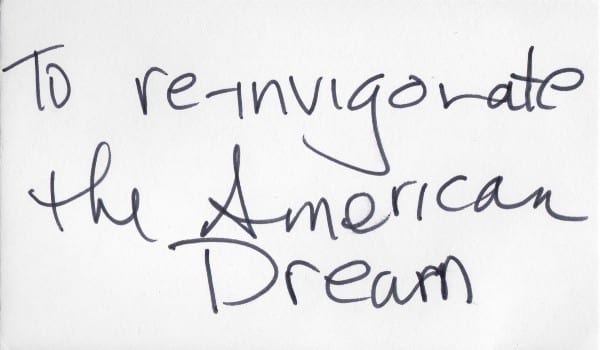 To re-invigorate
the American
Dream